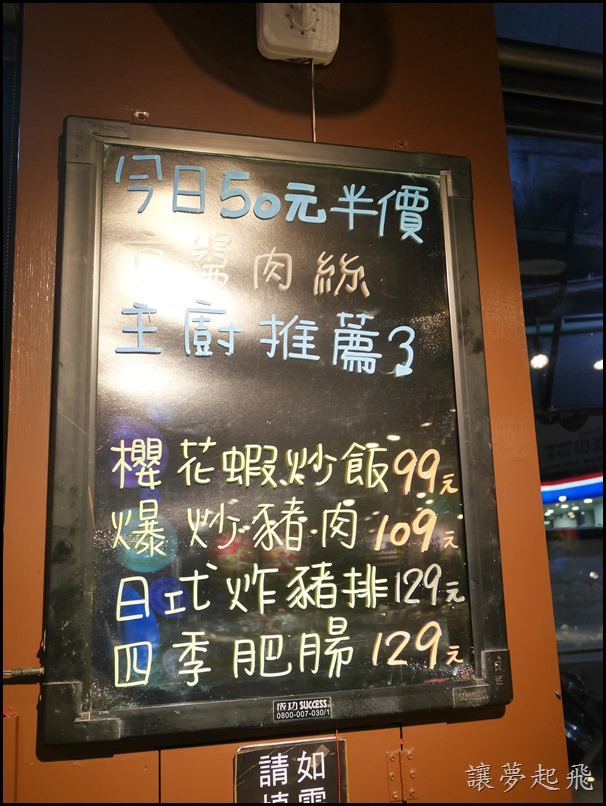 今日50元半價
京醬肉絲
主廚推薦
櫻花蝦炒飯99元
爆炒豬肉109元
日式炸豬排129元
四季肥腸129元
成功 SUCCESS
0800-007-030/1
如
請
讓夢起飛